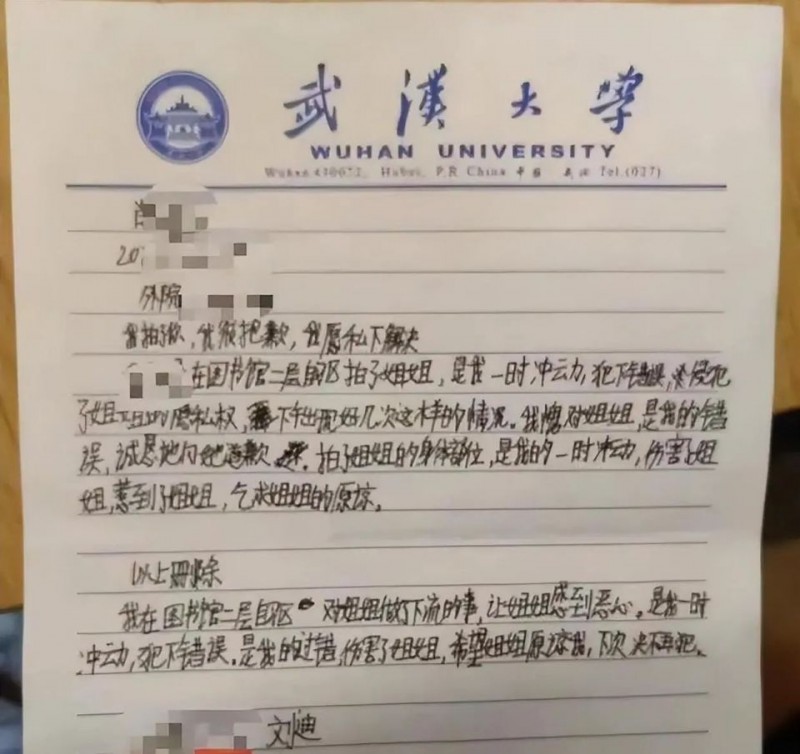 武漢大學
WUHAN UNIVERSITY
Wuhan 430072, Hubei, P.R China 中国 武汉 Tel.(027)
肖
20
外院
我拍了你,我很抱歉,我愿私下解决
在图书馆二层自习区拍了姐姐,是我一时冲动,犯下错误,侵犯
了姐姐的隐私权,下出现好几次这样的情况。我愧对姐姐,是我的错
误,诚恳地向她道歉。拍了姐姐的身体部位,是我的一时冲动,伤害了姐
姐,惹到了姐姐,乞求姐姐的原谅。
以上删除
我在图书馆二层自习区对姐姐做了下流的事,让姐姐感到恶心。是我一时
冲动,犯下错误。是我的过错,伤害了姐姐,希望姐姐原谅我,下次决不再犯。